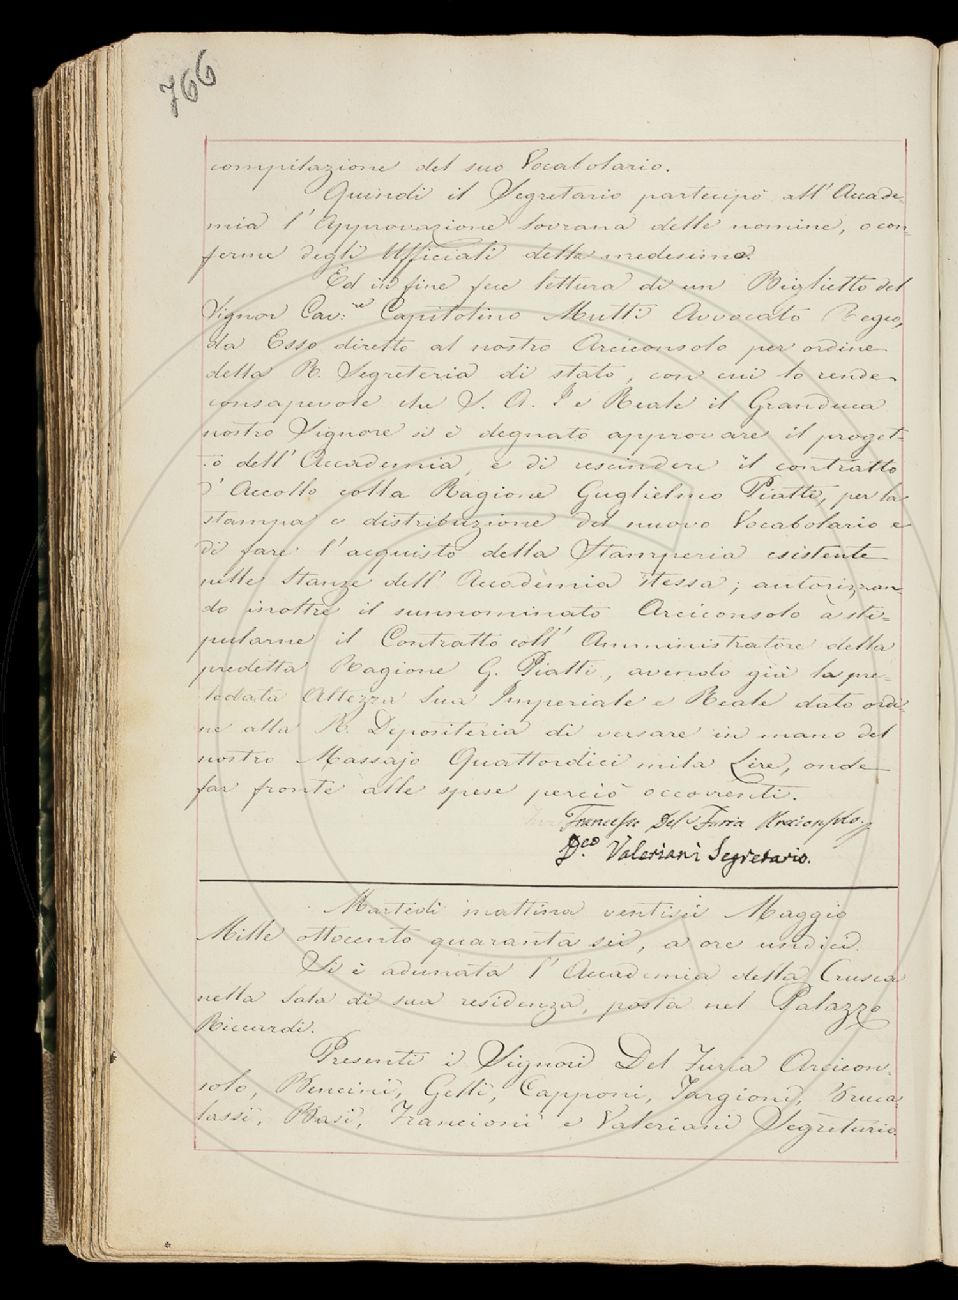 766
compilazione del suo Vocabolario.
Quindi il Segretario partecipò all'Accade-
mia l'Approvazione Sovrana delle nomine, o con-
ferme degli Ufficiali della medesima.
Ed in fine fece lettura di un Biglietto del
Signor Cav:re Capitolino Mutti Avvocato Regio,
da Esso diretto al nostro Arciconsolo per ordine
della R. Segreteria di stato, con cui lo rende
consapevole che S. A. I e Reale il Granduca
nostro Signore si è degnato approvare il proget-
to dell'Accademia, e di rescindere il contratto
d'Accollo colla Ragione Guglielmo Piatti, per la
stampa e distribuzione del nuovo Vocabolario e
di fare l'acquisto della Stamperia esistente
nelle Stanze dell'Accademia stessa; autorizzan
do inoltre il sunnominato Arciconsolo a sti-
pularne il Contratto coll'Amministratore della
predetta Ragione G. Piatti, avendo già la pre-
lodata Altezza Sua Imperiale e Reale dato ordi-
ne alla R. Depositeria di versare in mano del
nostro Massajo Quattordici mila Lire, onde
far fronte alle spese perciò occorrenti.
Francesco Del Furia Arciconsolo
D.co Valeriani Segretario.
Martedì mattina ventisei Maggio
Mille ottocento quaranta sei, a ore undici.
Si è adunata l'Accademia della Crusca
nella Sala di sua residenza, posta nel Palazzo
Riccardi.
Presenti i Signori Del Furia Arcicon-
solo, Bencini, Gelli, Capponi, Targioni, Bruca
lassi, Basi, Francioni e Valeriani Segretario.